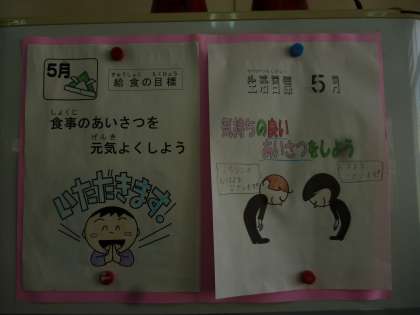 5月
きゅうしょく もくひょう
給食の目標
しょくじ
食事のあいさつを
げんき
元気よくしよう
いただきます。
生活目標 5月
気持ちの良い
あいさつをしよう